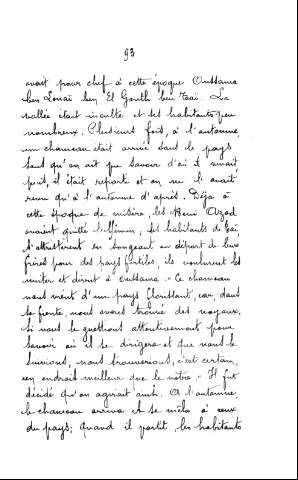 93
avait pour chef à cette époque Oussama
ben Louaï ben El Gouth ben Taï. La
vallée était inculte et ses habitants peu
nombreux. Plusieurs fois, à l'automne,
un chameau était arrivé dans le pays
sans qu'on ait pu savoir d'où il venait
puis, il était reparti et on ne l'avait
revu qu'à l'automne d'après. Déjà à
cette époque de misère, les Beni Ozad
avaient quitté l'Yémen, les habitants de
s'attristèrent en songeant au départ de leurs
frères pour des pays fertiles, ils voulurent les
imiter et dirent à Oussama : " Ce chameau
nous vient d'un pays florissant, car, dans
sa fiente, nous avons trouvé des noyaux.
Si nous le guettions attentivement pour
savoir où il se dirigera et que nous le
suivions, nous trouverions, c'est certain,
un endroit meilleur que le nôtre. " Il fut
décidé qu'on agirait ainsi. A l'automne
le chameau arriva et se mêla à ceux
du pays; quand il partit, les habitants